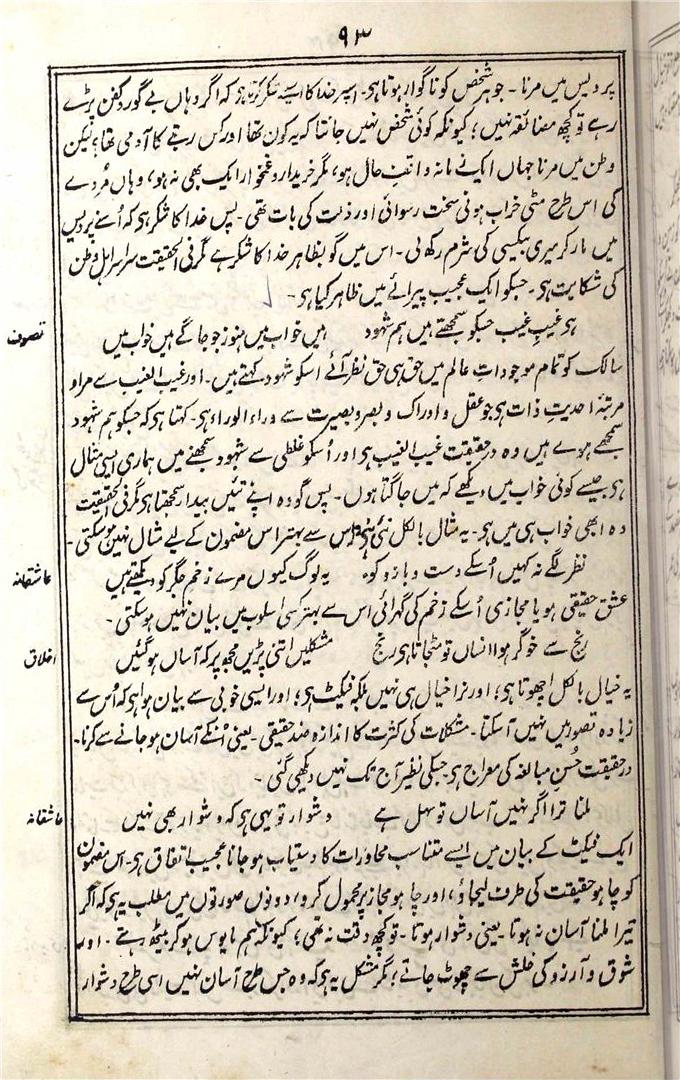 ۹۳
پردیس میں مرنا ۔ جو ہر شخص کو ناگوار ہوتا ہی ۔ اسپر خدا کا اسلیے شکر کرتا ہے کہ اگر وہاں بے گور و کفن پڑے
رہے تو کچھ مضائقہ نہیں ؛ کیونکہ کوئی شخص نہیں جانتا کہ یہ کون تھا اور کس رتبے کا آدمی تھا ؟ لیکن
وطن میں مرنا جہاں ایک زمانہ واقفِ حال ہو ، مگر خریدار و غمخوار ایک بھی نہ ہو ، وہاں مُردے
کی اس طرح مٹی خراب ہونی سخت رسوائی اور ذلت کی بات تھی ۔ پس خدا کا شکر ہی کہ اُسنے پردیس
میں مار کر میری بیکسی کی شرم رکھ لی ۔ اس میں گو بظاہر خدا کا شکر ہے مگر فی الحقیقت سراسر اہلِ وطن
کی شکایت ہی ۔ جسکو ایک عجیب پیرائے میں ظاہر کیا ہی ۔
تصوف
ہی غیبِ غیب جسکو سمجھتے ہیں ہم شہود ہیں خواب میں ہنوز جو جاگے ہیں خواب میں
سالک کو تمام موجوداتِ عالم میں حق ہی حق نظر آئے اسکو شہود کہتے ہیں ۔ اور غیب الغیب سے مراد
مرتبۂ احدیتِ ذات ہی جو عقل و ادراک و بصر و بصیرت سے وراء الوراء ہی ۔ کہتا ہی کہ جسکو ہم شہود
سمجھے ہوے ہیں وہ درحقیقت غیب الغیب ہی اور اُسکو غلطی سے شہود سمجھنے میں ہماری ایسی مثال
ہی جیسے کوئی خواب میں دیکھے کہ میں جاگتا ہوں ۔ پس گو وہ اپنے تئیں بیدار سمجھتا ہی مگر فی الحقیقت
وہ ابھی خواب ہی میں ہی ۔ یہ مثال بالکل نئی ہی اور اس سے بہتر اس مضمون کے لیے مثال نہیں ہوسکتی ۔
عاشقانہ
نظر لگے نہ کہیں اُسکے دست و بازو کو یہ لوگ کیوں مرے زخمِ جگر کو دیکھتے ہیں
عشقِ حقیقی ہو یا مجازی اُسکے زخم کی گہرائی اس سے بہتر کسی اسلوب میں بیان نہیں ہوسکتی ۔
اخلاق
رنج سے خوگر ہوا انساں تو مٹجاتا ہی رنج مشکلیں اتنی پڑیں مجھ پر کہ آساں ہوگئیں
یہ خیال بالکل اچھوتا ہی ؛ اور نرا خیال ہی نہیں بلکہ فیکٹ ہی ؛ اور ایسی خوبی سے بیان ہوا ہی کہ اُس سے
زیادہ تصور میں نہیں آسکتا ۔ مشکلات کی کثرت کا اندازہ ضدِ حقیقی ۔ یعنی اُنکے آسان ہوجانے سے کرنا ۔
درحقیقت حُسنِ مبالغہ کی معراج ہی جسکی نظیر آج تک نہیں دیکھی گئی ۔
عاشقانہ
ملنا ترا اگر نہیں آساں تو سہل ہے دشوار تو یہی ہے کہ دشوار بھی نہیں
ایک فیکٹ کے بیان میں ایسے متناسب محاورات کا دستیاب ہوجانا عجیب اتفاق ہی ۔ اس مضمون
کو چاہو حقیقت کی طرف لیجاؤ ، اور چاہو مجاز پر محمول کرو ، دونوں صورتوں میں مطلب یہ ہی کہ اگر
تیرا ملنا آسان نہ ہوتا ۔ یعنی دشوار ہوتا ۔ تو کچھ دقت نہ تھی ؛ کیونکہ ہم مایوس ہوکر بیٹھ رہتے ۔ اور
شوق و آرزو کی خلش سے چھوٹ جاتے ؛ مگر مشکل یہ ہی کہ وہ جس طرح آسان نہیں اسی طرح دشوار